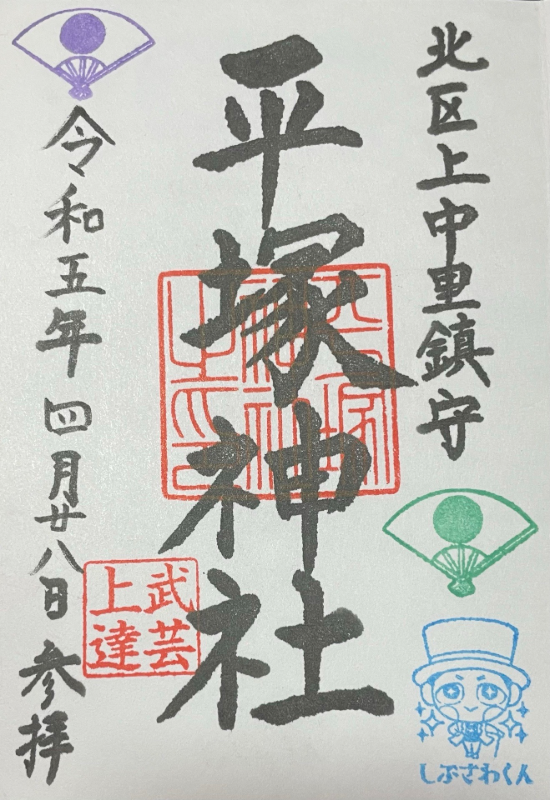 北区上中里鎮守
平塚神社
武芸
上達
令和五年四月廿八日参拝
しぶさわくん